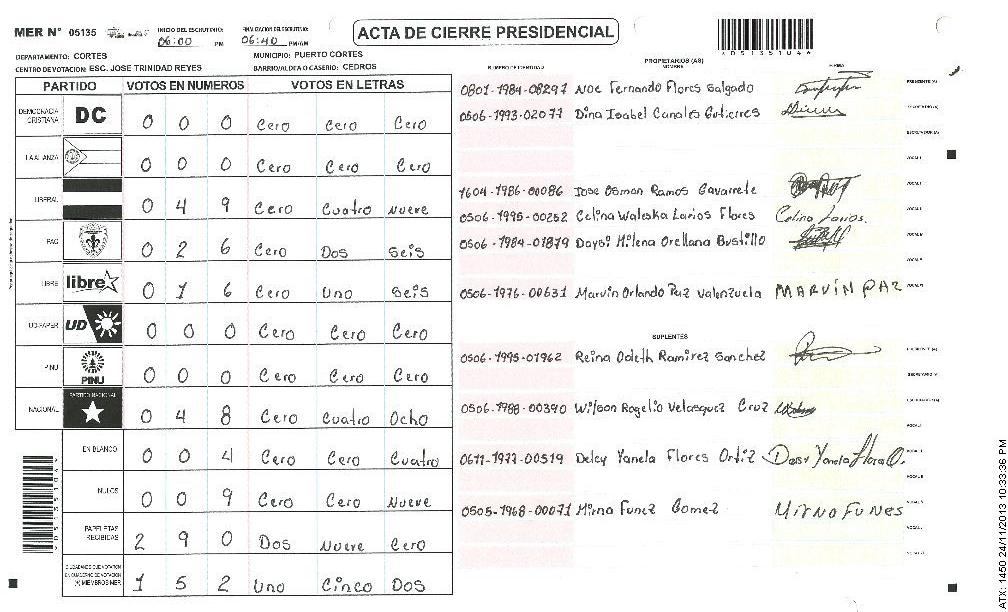 MER N° 05135
INICIO DEL ESCRUTINIO:
06:00 PM
FINALIZACION DEL ESCRUTINIO:
06:40 PM/AM
ACTA DE CIERRE PRESIDENCIAL
DEPARTAMENTO: CORTES
MUNICIPIO: PUERTO CORTES
CENTRO DE VOTACION: ESC. JOSE TRINIDAD REYES
BARRIO/ALDEA O CASERIO: CEDROS
PARTIDO VOTOS EN NUMEROS VOTOS EN LETRAS
DEMOCRACIA CRISTIANA DC 0 0 0 Cero Cero Cero
LA ALIANZA 0 0 0 Cero Cero Cero
LIBERAL 0 4 9 Cero Cuatro Nueve
PAC 0 2 6 Cero Dos Seis
LIBRE libre 0 1 6 Cero Uno Seis
UD-FAPER UD 0 0 0 Cero Cero Cero
PINU PINU 0 0 0 Cero Cero Cero
NACIONAL PARTIDO NACIONAL 0 4 8 Cero Cuatro Ocho
EN BLANCO 0 0 4 Cero Cero Cuatro
NULOS 0 0 9 Cero Cero Nueve
PAPELETAS RECIBIDAS 2 9 0 Dos Nueve Cero
CIUDADANOS QUE VOTARON EN CUADERNO DE VOTACION (+) MIEMBROS MER 1 5 2 Uno Cinco Dos
PROPIETARIOS (AS)
NUMERO DE IDENTIDAD NOMBRE FIRMA
0801-1984-08297 Noe Fernando Flores Salgado
0506-1993-02077 Dina Isabel Canales Gutierres
1604-1986-00086 Jose Osman Ramos Gavarrete
0506-1995-00252 Celina Waleska Larios Flores Celina Larios.
0506-1984-01879 Daysi Milena Orellana Bustillo
0506-1976-00631 Marvin Orlando Paz Valenzuela MARVIN PAZ
SUPLENTES
0506-1995-01962 Reina Odeth Ramirez Sanchez
0506-1988-00390 Wilson Rogelio Velasquez Cruz
0611-1977-00519 Delcy Yanela Flores Ortiz
0505-1968-00071 Mirna Funez Gomez Mirna FUNES
ATX: 1450 24/11/2013 10:33:36 PM